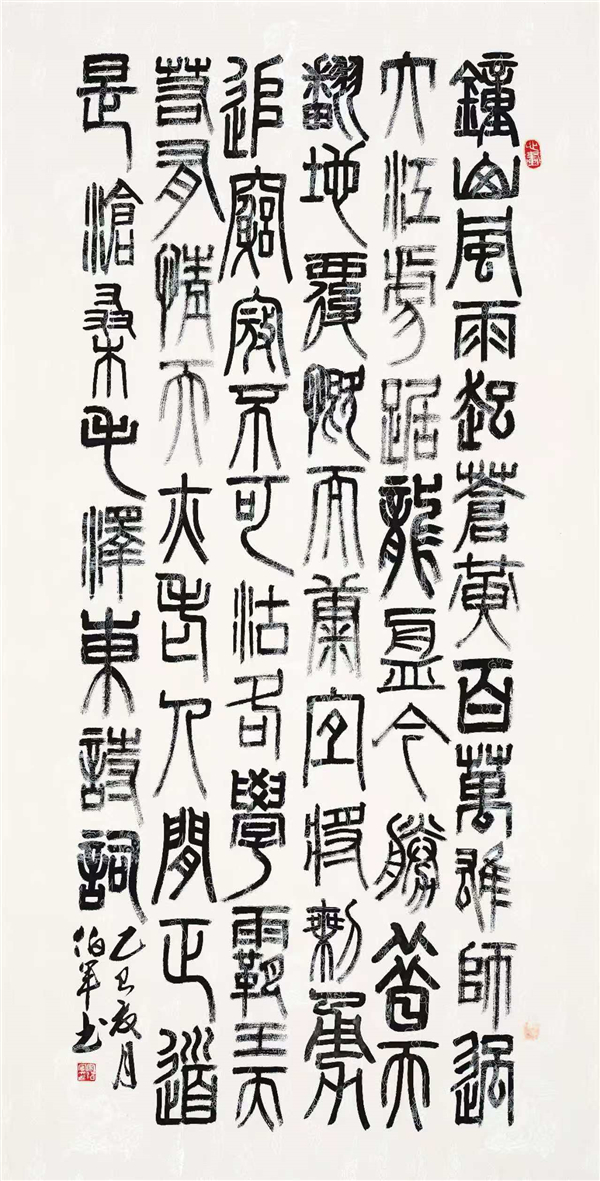 鐘山風雨起蒼黃百萬雄師過
大江虎踞龍盤今勝昔天
翻地覆慨而康宜將剩勇
追窮寇不可沽名學霸王天
若有情天亦老人間正道
是滄桑毛澤東詩詞
夏月
伯軍書